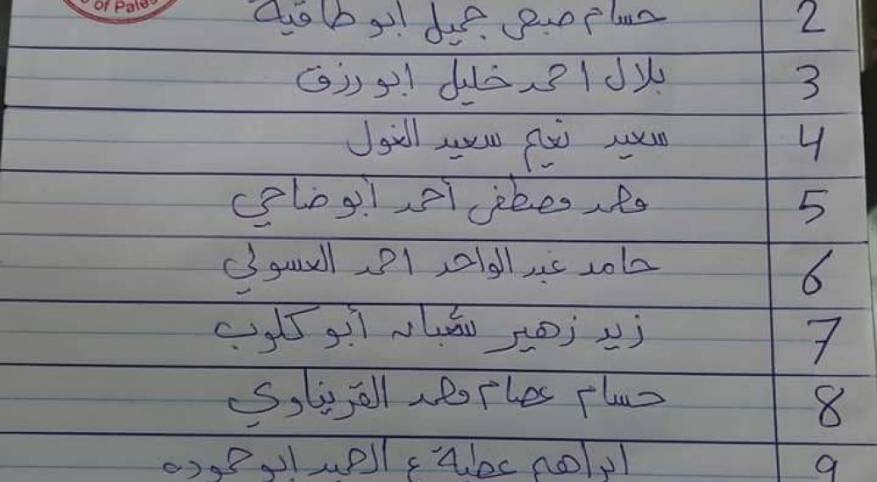 of Pales
2 حسام صبحي جميل ابو طاقية
3 بلال احمد خليل ابو رزق
4 سعيد نعيم سعيد الغول
5 محمد مصطفى أحمد أبو ضاحي
6 حامد عبد الواحد احمد العسولي
7 زيد زهير شعبان أبو كلوب
8 حسام عصام محمد القريناوي
9 ابراهيم عطية ع الحميد ابو حموده